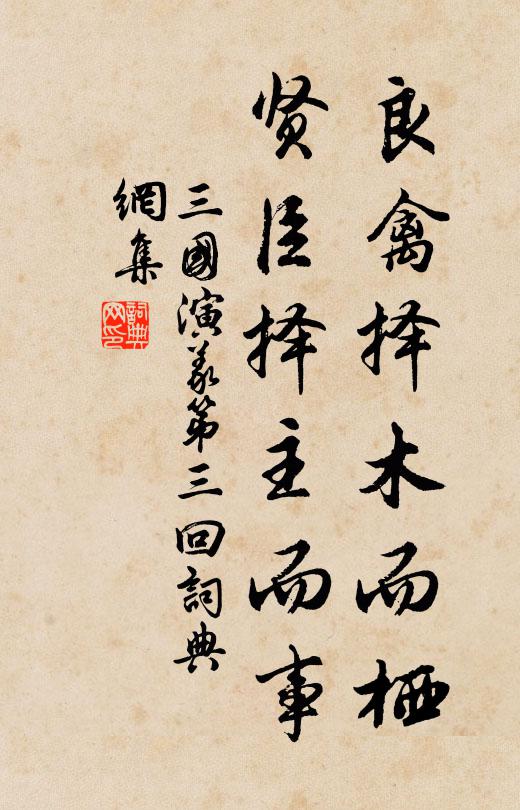 良禽择木而栖
贤臣择主而事
三國演义第三回詞典
網集
詞典
网印